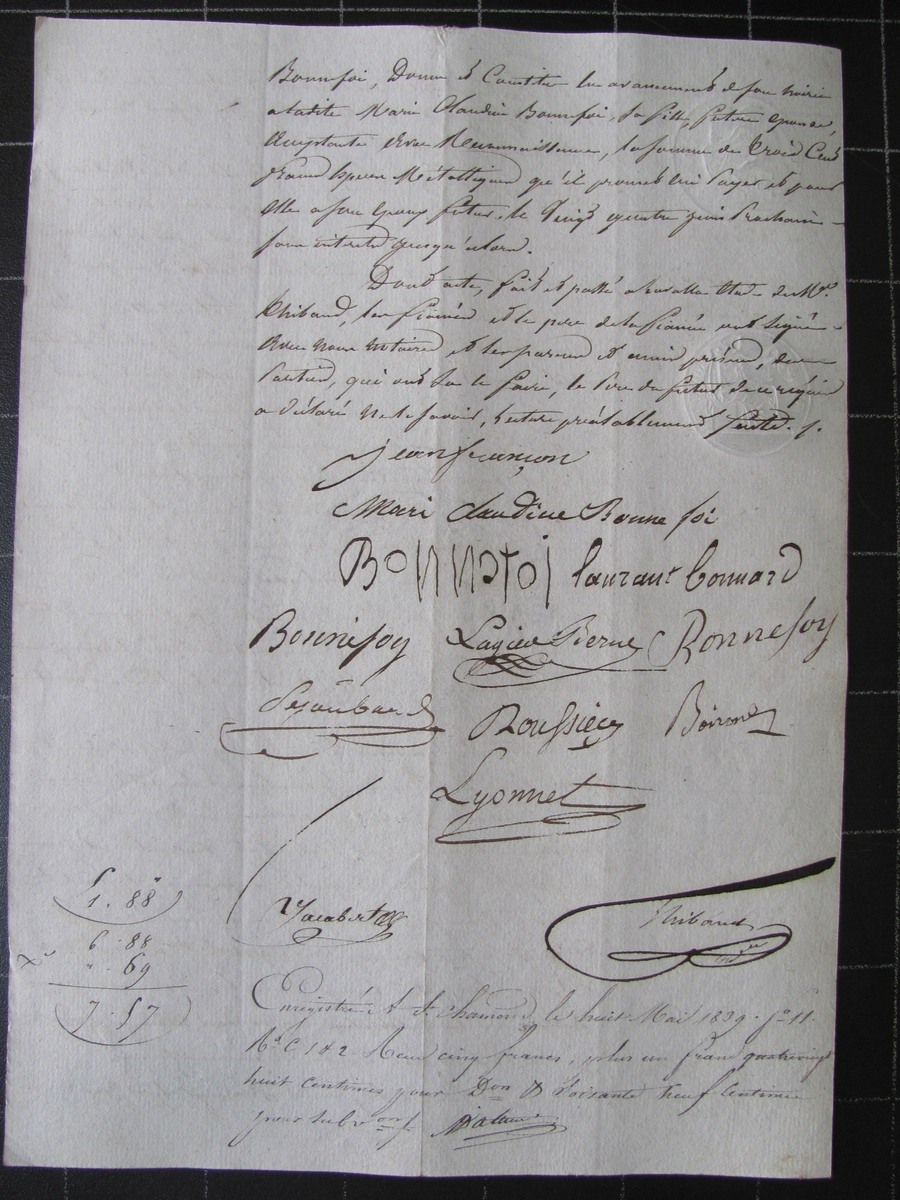 Bonnefoi, Donne et Constitue en avancement de son hoirie
a ladite Marie Claudine Bonnefoi, sa fille, future épouse,
Acceptante avec Reconnaissance, la somme de Trois Cent
francs espèces Métalliques qu'il promet lui payer et pour
Elle a son Epoux futur, le Vingt quatre juin Prochain
sans intérêts jusqu'alors.
Dont acte, fait et passé a
Thibaud, les fiancés et le père de la fiancée ont signé
Avec nous notaires et les parents et amis présens, de ce
qui ont su le faire, le Père du futur de ce requis
a déclaré ne le savoir, Lecture préalablement faite.
jean françon
Mari claudine Bonne foi
BoNNefoi laurant bonnard
Bonnefoy Lagier Pierre Bonnefoy
Roussier
Lyonnet
1. 88
6. 88
". 69
7. 57
Jacabert
Thibaud
Enregistré à St. Chamond, le huit Mai 1839. fo. 11.
Vo. C. 1 & 2 Reçu cinq francs, plus un franc quatrevingt
huit centimes pour Don & Soixante neuf Centimes
pour subvon.